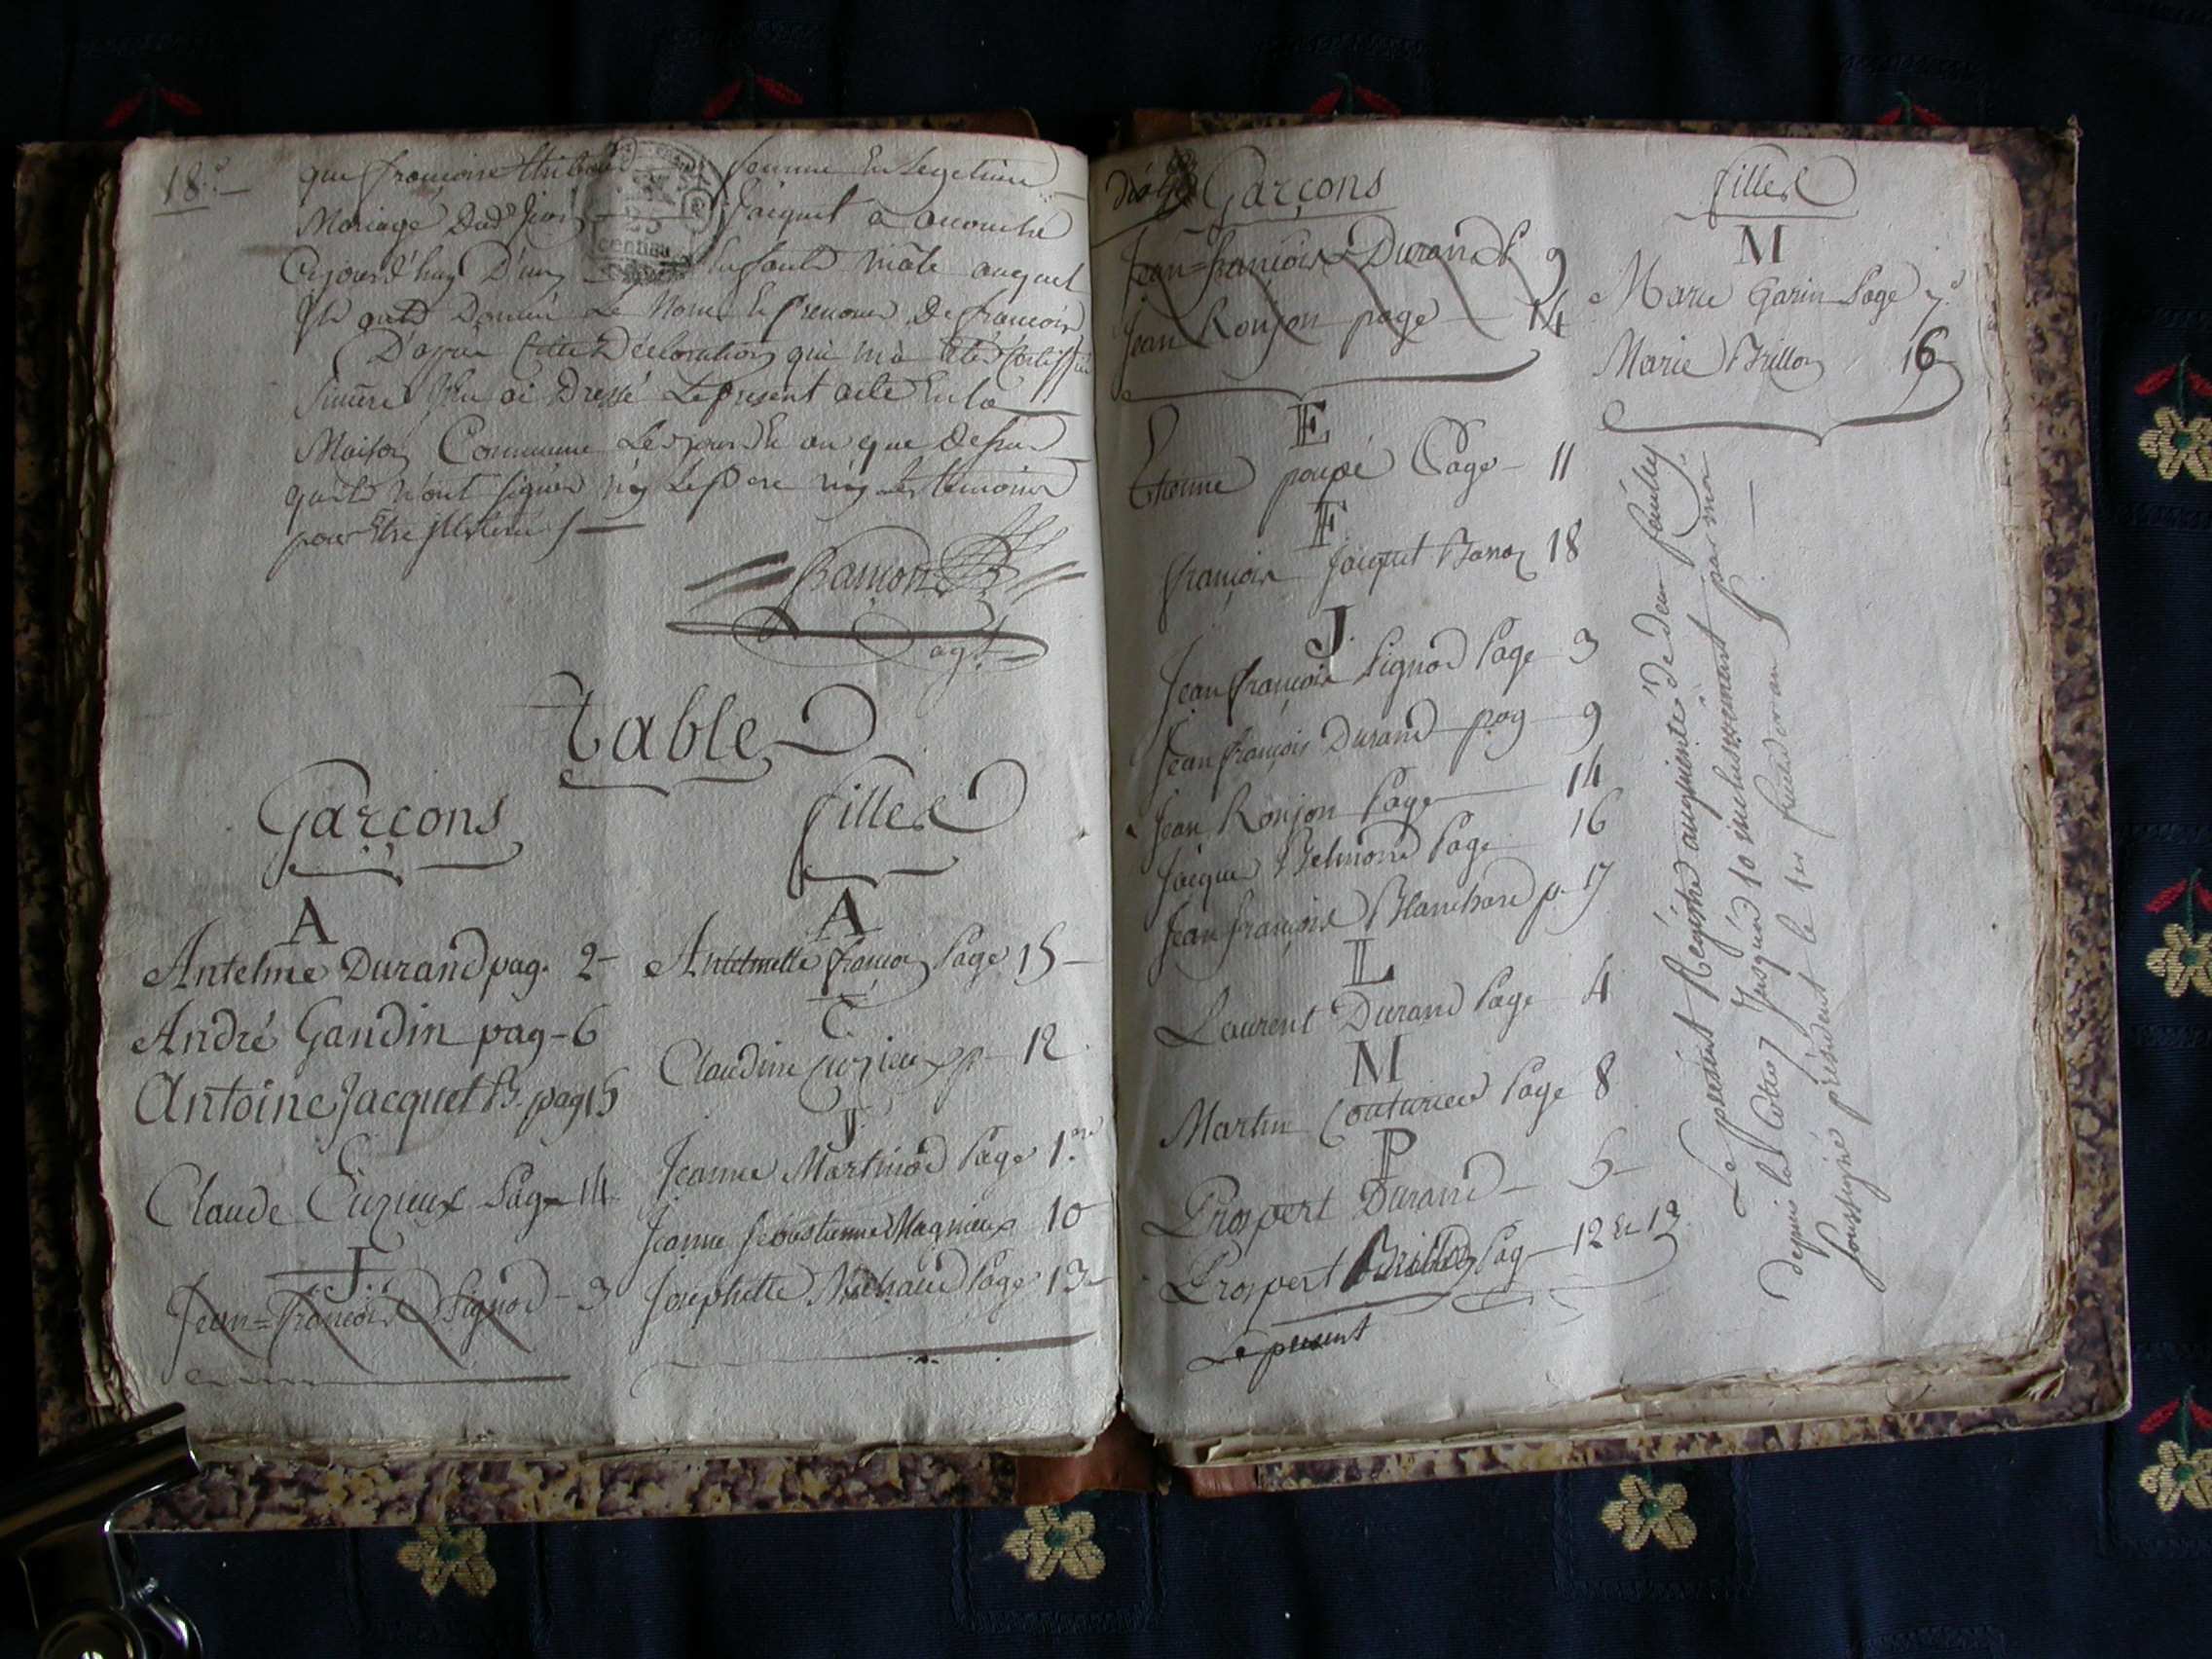 18.e
que françoise femme En Legetime
Mariage Dud. Jean Jacquet a accouché
Cejourd'huy D'un Enfant mâle auquel
Ils ont Donné Le Nom Et prenom De françois
D'après Cette Déclaration qui m'a été Certiffiée
Sincère J'en ai Dressé Le présent acte En la
Maison Commune Les jour Et an que Dessus
n'ont signés n'y Le père n'y Les temoins
pour Être
agt
table
Garçons
A
Antelme Durand pag. 2
André Gandin pag - 6
Antoine Jacquet B. pag 15
C
Claude Cuzieux Page 14
J.
Jean=françois Pignod - 3
filles
A
Antelmette françon Page 15
C.
Claudine Cuzieux p 12
J
Jeanne Martinod Page 1.ere
Jeanne Sebastienne Magnieux 10
Josephette Michaud Page 13
Garçons
Jean=françois Durand P 9
Jean Ronjon page 14
E
Etienne poupé Page - 11
F
françois Jacquet 18
J.
Jean françois Pignod Page 3
Jean françois Durand pag 9
Jean Ronjon Page 14
Jacques Belmond Page 16
Jean françois Blanchard p. 17
L
Laurent Durand Page 4
M
Martin Couturier Page 8
P
Prospert Durand - 5
Prospert Brillod Pag - 12 Et 13
Le present
filles
M
Marie Garin Page 7.e
Marie Brillon 16
Le present Registre augmenté de deux feuilles
depuis la Cotte 7 Jusqu'ad 10 inclusivement par moi
soussigné président le 1er